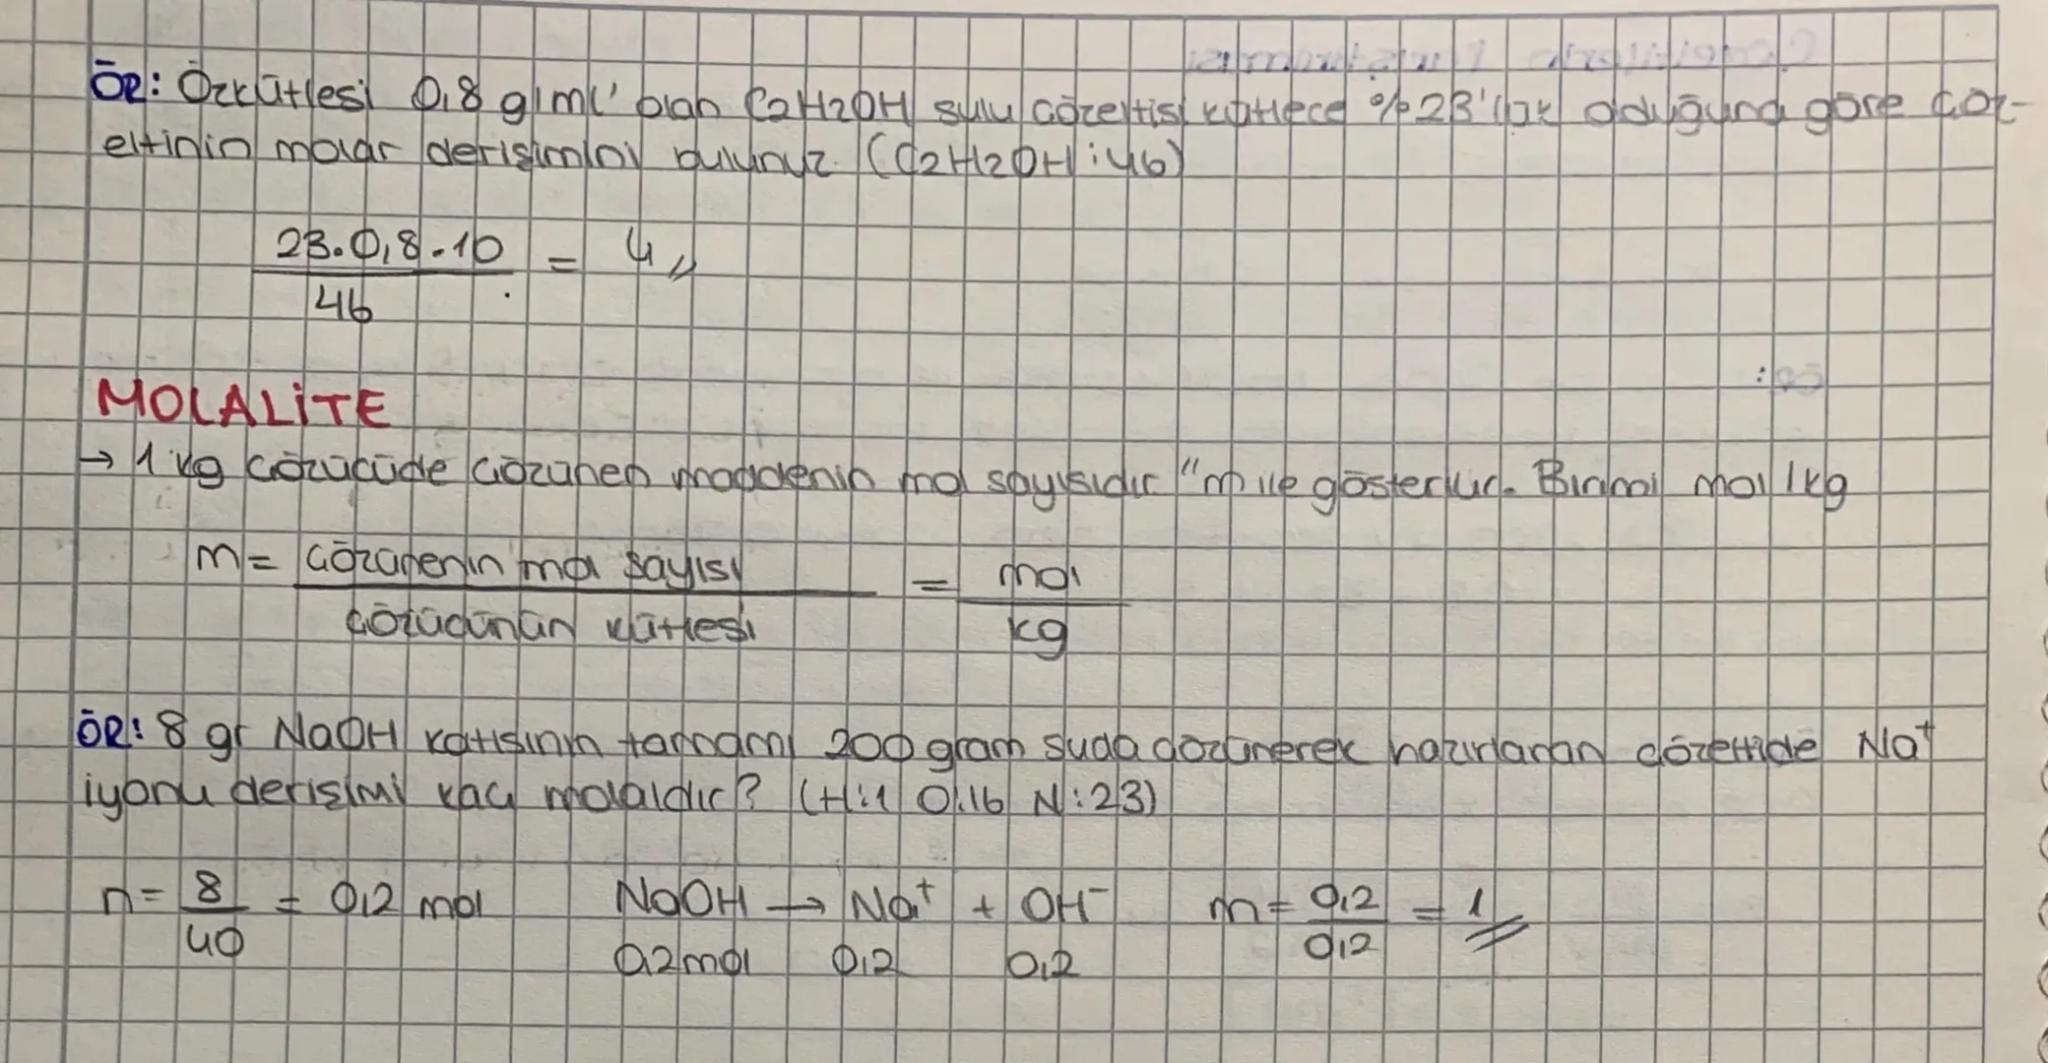 ÖR: Özkütlesi 0,8 g/ml' olan C2H2OH sulu çözeltisi kütlece %23'lük olduğuna göre çöz-
eltinin molar derişimini bulunuz. (C2H2OH:46)
23.0,8.10 / 46 = 4
MOLALİTE
→ 1 kg çözücüde çözünen maddenin mol sayısıdır "m ile gösterilir. Birimi mol/kg
m = çözünenin mol sayısı / çözücünün kütlesi = mol / kg
ÖR: 8 gr NaOH katısının tamamı 200 gram suda çözünerek hazırlanan çözeltide Na+
iyonu derişimi kaç molaldir? (H:1 O:16 N:23)
n = 8 / 40 = 0,2 mol NaOH → Na+ + OH- m = 0,2 / 0,2 = 1
0,2 mol 0,2 0,2